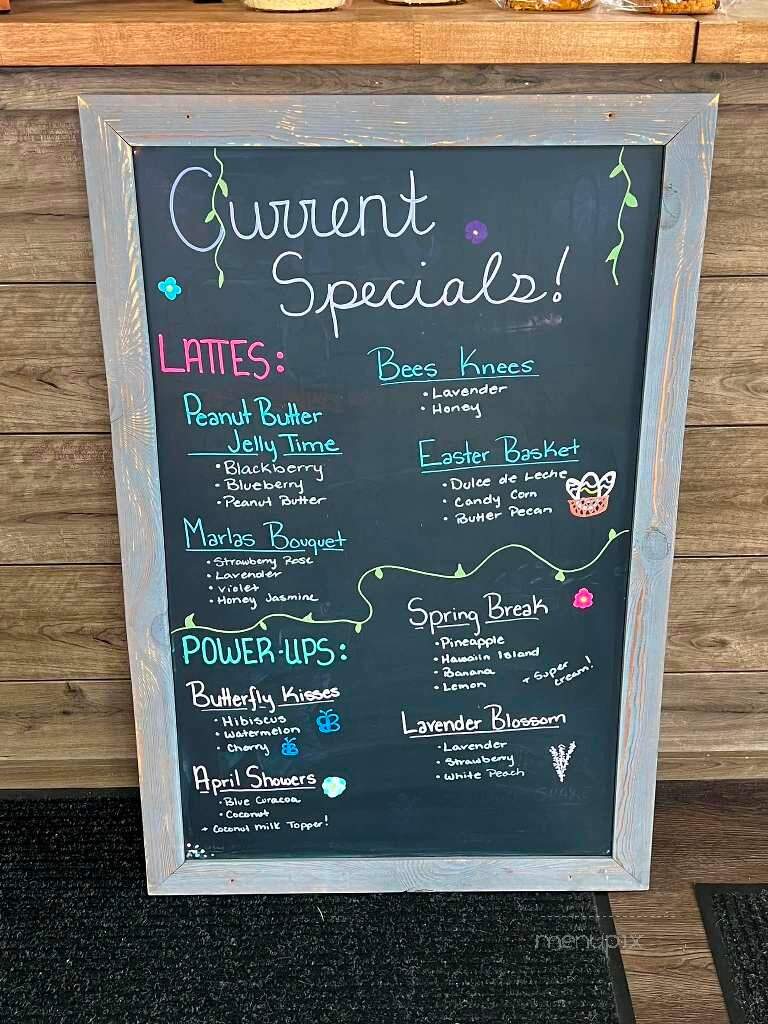 Current
Specials!
LATTES:
Peanut Butter
Jelly Time
• Blackberry
• Blueberry
• Peanut Butter
Marlas Bouquet
• Strawberry Rose
• Lavender
• Violet
• Honey Jasmine
Bees Knees
• Lavender
• Honey
Easter Basket
• Dulce de Leche
• Candy Corn
• Butter Pecan
POWER-UPS:
Butterfly Kisses
• Hibiscus
• Watermelon
• Cherry
April Showers
• Blue Curacoa
• Coconut
+ Coconut Milk Topper!
Spring Break
• Pineapple
• Hawaiin Island
• Banana
• Lemon
+ Super
cream!
Lavender Blossom
• Lavender
• Strawberry
• White Peach
menupix